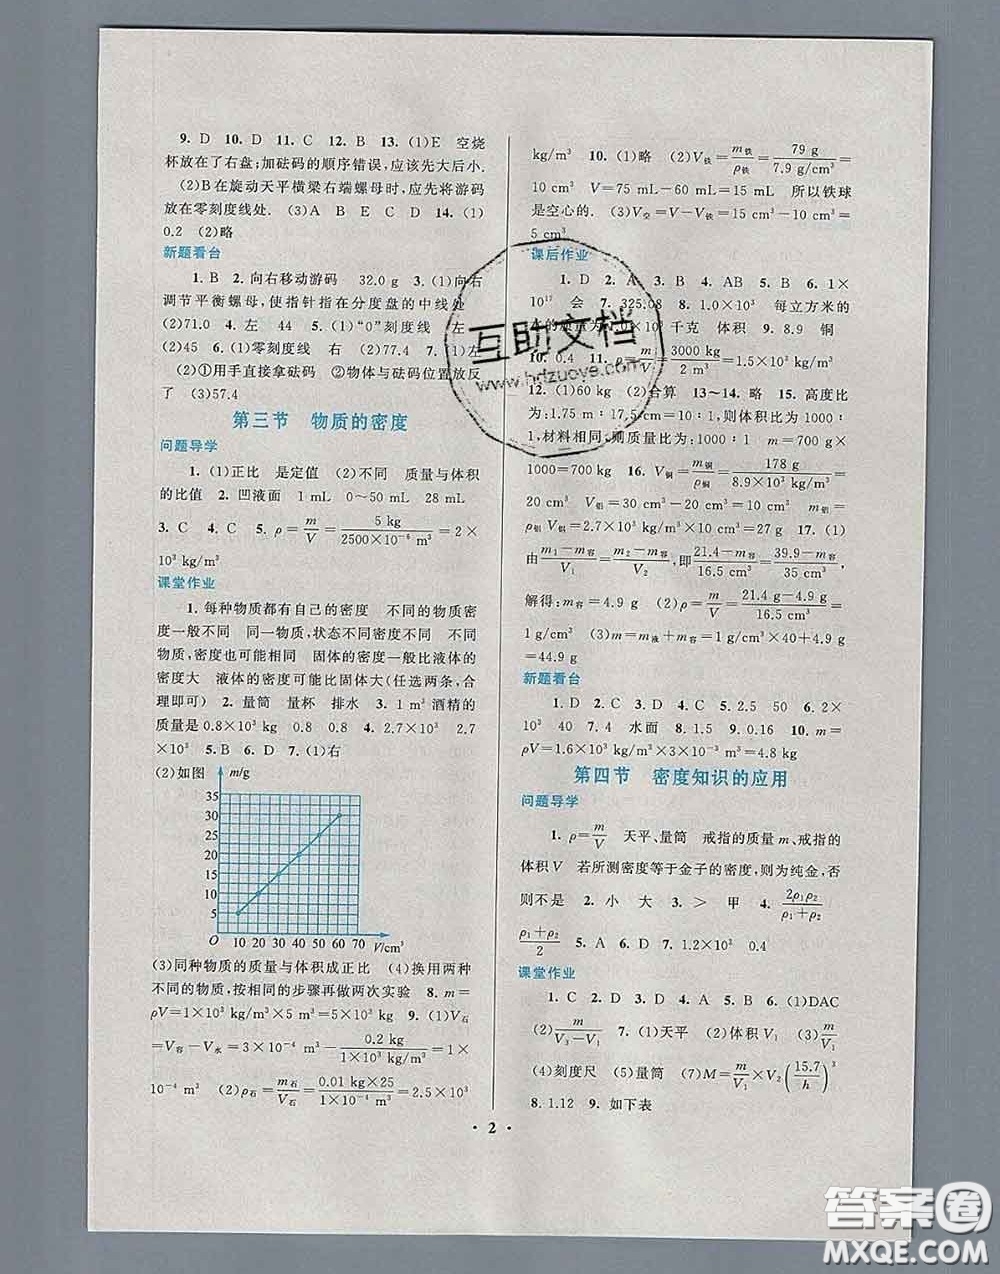 9. D 10. D 11. C 12. B 13. (1)E 空烧
杯放在了右盘;加砝码的顺序错误,应该先大后小.
(2)B 在旋动天平横梁右端螺母时,应先将游码
放在零刻度线处. (3)A B E C D 14. (1)
0.2 (2)略
新题看台
1. B 2. 向右移动游码 32.0 g 3. (1)向右
调节平衡螺母,使指针指在分度盘的中线处
(2)71.0 4. 左 44 5. (1)“0”刻度线 左
(2)45 6. (1)零刻度线 右 (2)77.4 7. (1)左
(2)①用手直接拿砝码 ②物体与砝码位置放反
了 (3)57.4
第三节 物质的密度
问题导学
1. (1)正比 是定值 (2)不同 质量与体积
的比值 2. 凹液面 1 mL 0～50 mL 28 mL
3. C 4. C 5. ρ=m/V=5 kg/(2500×10⁻⁶ m³)=2×
10³ kg/m³
课堂作业
1. 每种物质都有自己的密度 不同的物质密
度一般不同 同一物质,状态不同密度不同 不同
物质,密度也可能相同 固体的密度一般比液体的
密度大 液体的密度可能比固体大(任选两条,合
理即可) 2. 量筒 量杯 排水 3. 1 m³ 酒精的
质量是 0.8×10³ kg 0.8 0.8 4. 2.7 2.7×
10³ 5. B 6. D 7. (1)右
(2)如图
m/g
35
30
25
20
15
10
5
O 10 20 30 40 50 60 70 V/cm³
(3)同种物质的质量与体积成正比 (4)换用两种
不同的物质,按相同的步骤再做两次实验 8. m=
ρV=1×10³ kg/m³×5 m³=5×10³ kg 9. (1)V石
=V容−V水=3×10⁻⁴ m³−0.2 kg/(1×10³ kg/m³)=1×
10⁻⁴ m³ (2)ρ石=m石/V石=(0.01 kg×25)/(1×10⁻⁴ m³)=2.5×10³
kg/m³ 10. (1)略 (2)V铁=m铁/ρ铁=79 g/(7.9 g/cm³)=
10 cm³ V=75 mL−60 mL=15 mL 所以铁球
是空心的. (3)V空=V−V铁=15 cm³−10 cm³=
5 cm³
课后作业
1. D 2. A 3. B 4. AB 5. B 6. 1×
10¹⁷ 会 7. 325.08 8. 1.0×10³ 每立方米的
水的质量为1.0×10³ 千克 体积 9. 8.9 铜
10. 0.4 11. ρ=m/V=3000 kg/=1.5×10³ kg/m³
12. (1)60 kg (2)合算 13～14. 略 15. 高度比
为:1.75 m∶17.5 m=10∶1,则体积比为:1000∶
1,材料相同;则质量比为:1000∶1 m=0.7 kg×
1000=700 kg 16. V铜=m铜/ρ铜=178 g/(8.9×10³ kg/m³)=
20 cm³ V铝=30 cm³−20 cm³=10 cm³ m铝=
ρ铝V铝=2.7×10³ kg/m³×10 cm³=27 g 17. (1)
由(m₁−m容)/V₁=(m₂−m容)/V₂,即(21.4−m容)/16.5 cm³=(39.9−m容)/35 cm³,
解得:m容=4.9 g (2)ρ=m/V=(21.4 g−4.9 g)/16.5 cm³=
1 g/cm³ (3)m=m液+m容=1 g/cm³×40+4.9 g
=44.9 g
新题看台
1. D 2. C 3. D 4. C 5. 2.5 50 6. 2×
10³ 40 7. 4 水面 8. 1.5 9. 0.16 10. m=
ρV=1.6×10³ kg/m³×3×10⁻³ m³=4.8 kg
第四节 密度知识的应用
问题导学
1. ρ=m/V 天平、量筒 戒指的质量 m、戒指的
体积 V 若所测密度等于金子的密度,则为纯金,否
则不是 2. 小 大 3. > 甲 4. 2ρ₁ρ₂/(ρ₁+ρ₂)
(ρ₁+ρ₂)/2 5. A 6. D 7. 1.2×10³ 0.4
课堂作业
1. C 2. D 3. D 4. A 5. B 6. (1)DAC
(2)m/(V₃−V₁) 7. (1)天平 (2)体积 V₁ (3)m/V₁
(4)刻度尺 (5)量筒 (7)M=m/V₁×V₂(15.7/h)³
8. 1.12 9. 如下表
· 2 ·
互助文档
www.hdzuoye.com
答案圈
MXQE.COM